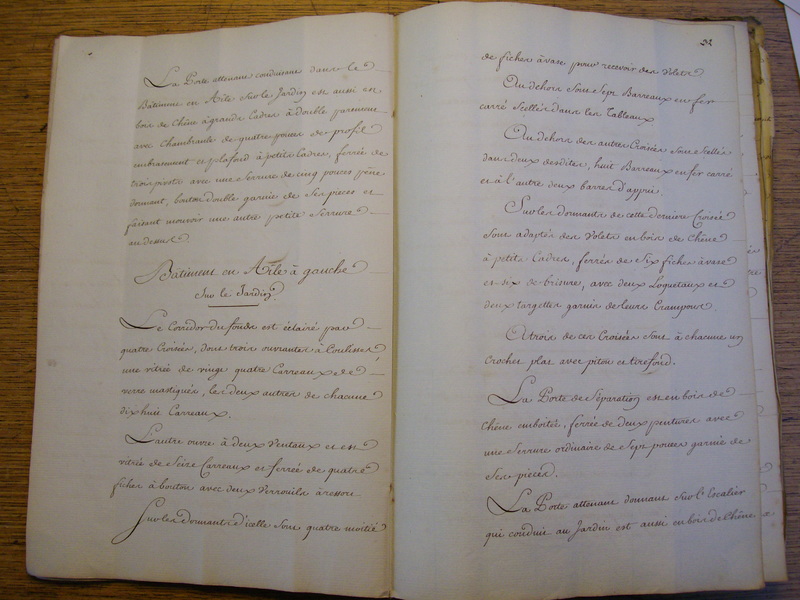 La Porte attenant conduisant dans le
Batiment en Aile sur le Jardin est aussi en
bois de Chêne à grands Cadres à double parement
avec Chambranle de quatre pouces de profil
embrasement et plafond à petits Cadres, ferrée de
trois pivots avec une Serrure de cinq pouces pêne
dormant, bouton double garnie de Ses pieces et
faisant mouvoir une autre petite Serrure
au dessus.
Bâtiment en Aile à gauche
Sur le Jardin
Le Corridor du fonds est éclairé par
quatre Croisées, dont trois ouvrantes à Coulisses
une vitrée de vingt quatre Carreaux de
verre mastiqués, les deux autres de chacune
dix huit Carreaux.
L'autre ouvre à deux Ventaux et est
vitrée de Seize Carreaux et ferrée de quatre
fiches à bouton avec deux Verrouils à ressort
Sur les dormants d'icelle sont quatre moitié
22
de fiches à vase pour recevoir des Volets
Au dehors Sont Sept Barreaux en fer
carré Scellés dans les Tableaux
Au dehors des autres Croisées Sont Scellés
dans deux desdites, huit Barreaux en fer carré
et à l'autre deux barres d'appui.
Sur les dormants de cette derniere Croisée
Sont adaptés des Volets en bois de Chêne
à petits Cadres, ferrés de Six fiches à vase
et six de brisure, avec deux Loquetaux et
deux targettes garnis de leurs Crampons
A trois de ces Croisées Sont à chacune un
Crochet plat avec piton et tirefond.
La Porte de Séparation est en bois de
Chêne emboitée, ferrée de deux pentures avec
une Serrure ordinaire de Sept pouces garnie de
Ses pieces.
La Porte attenant donnant Sur l'Escalier
qui conduit au Jardin est aussi en bois de Chêne